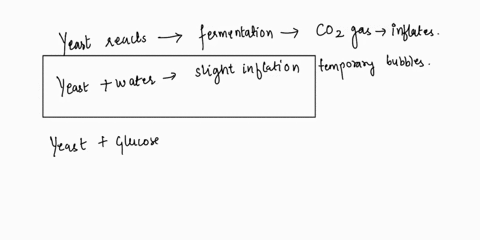 Yeast reacts → fermentation → CO2 gas → inflates.
Yeast + water → slight inflation temporary bubbles.
Yeast + Glucose